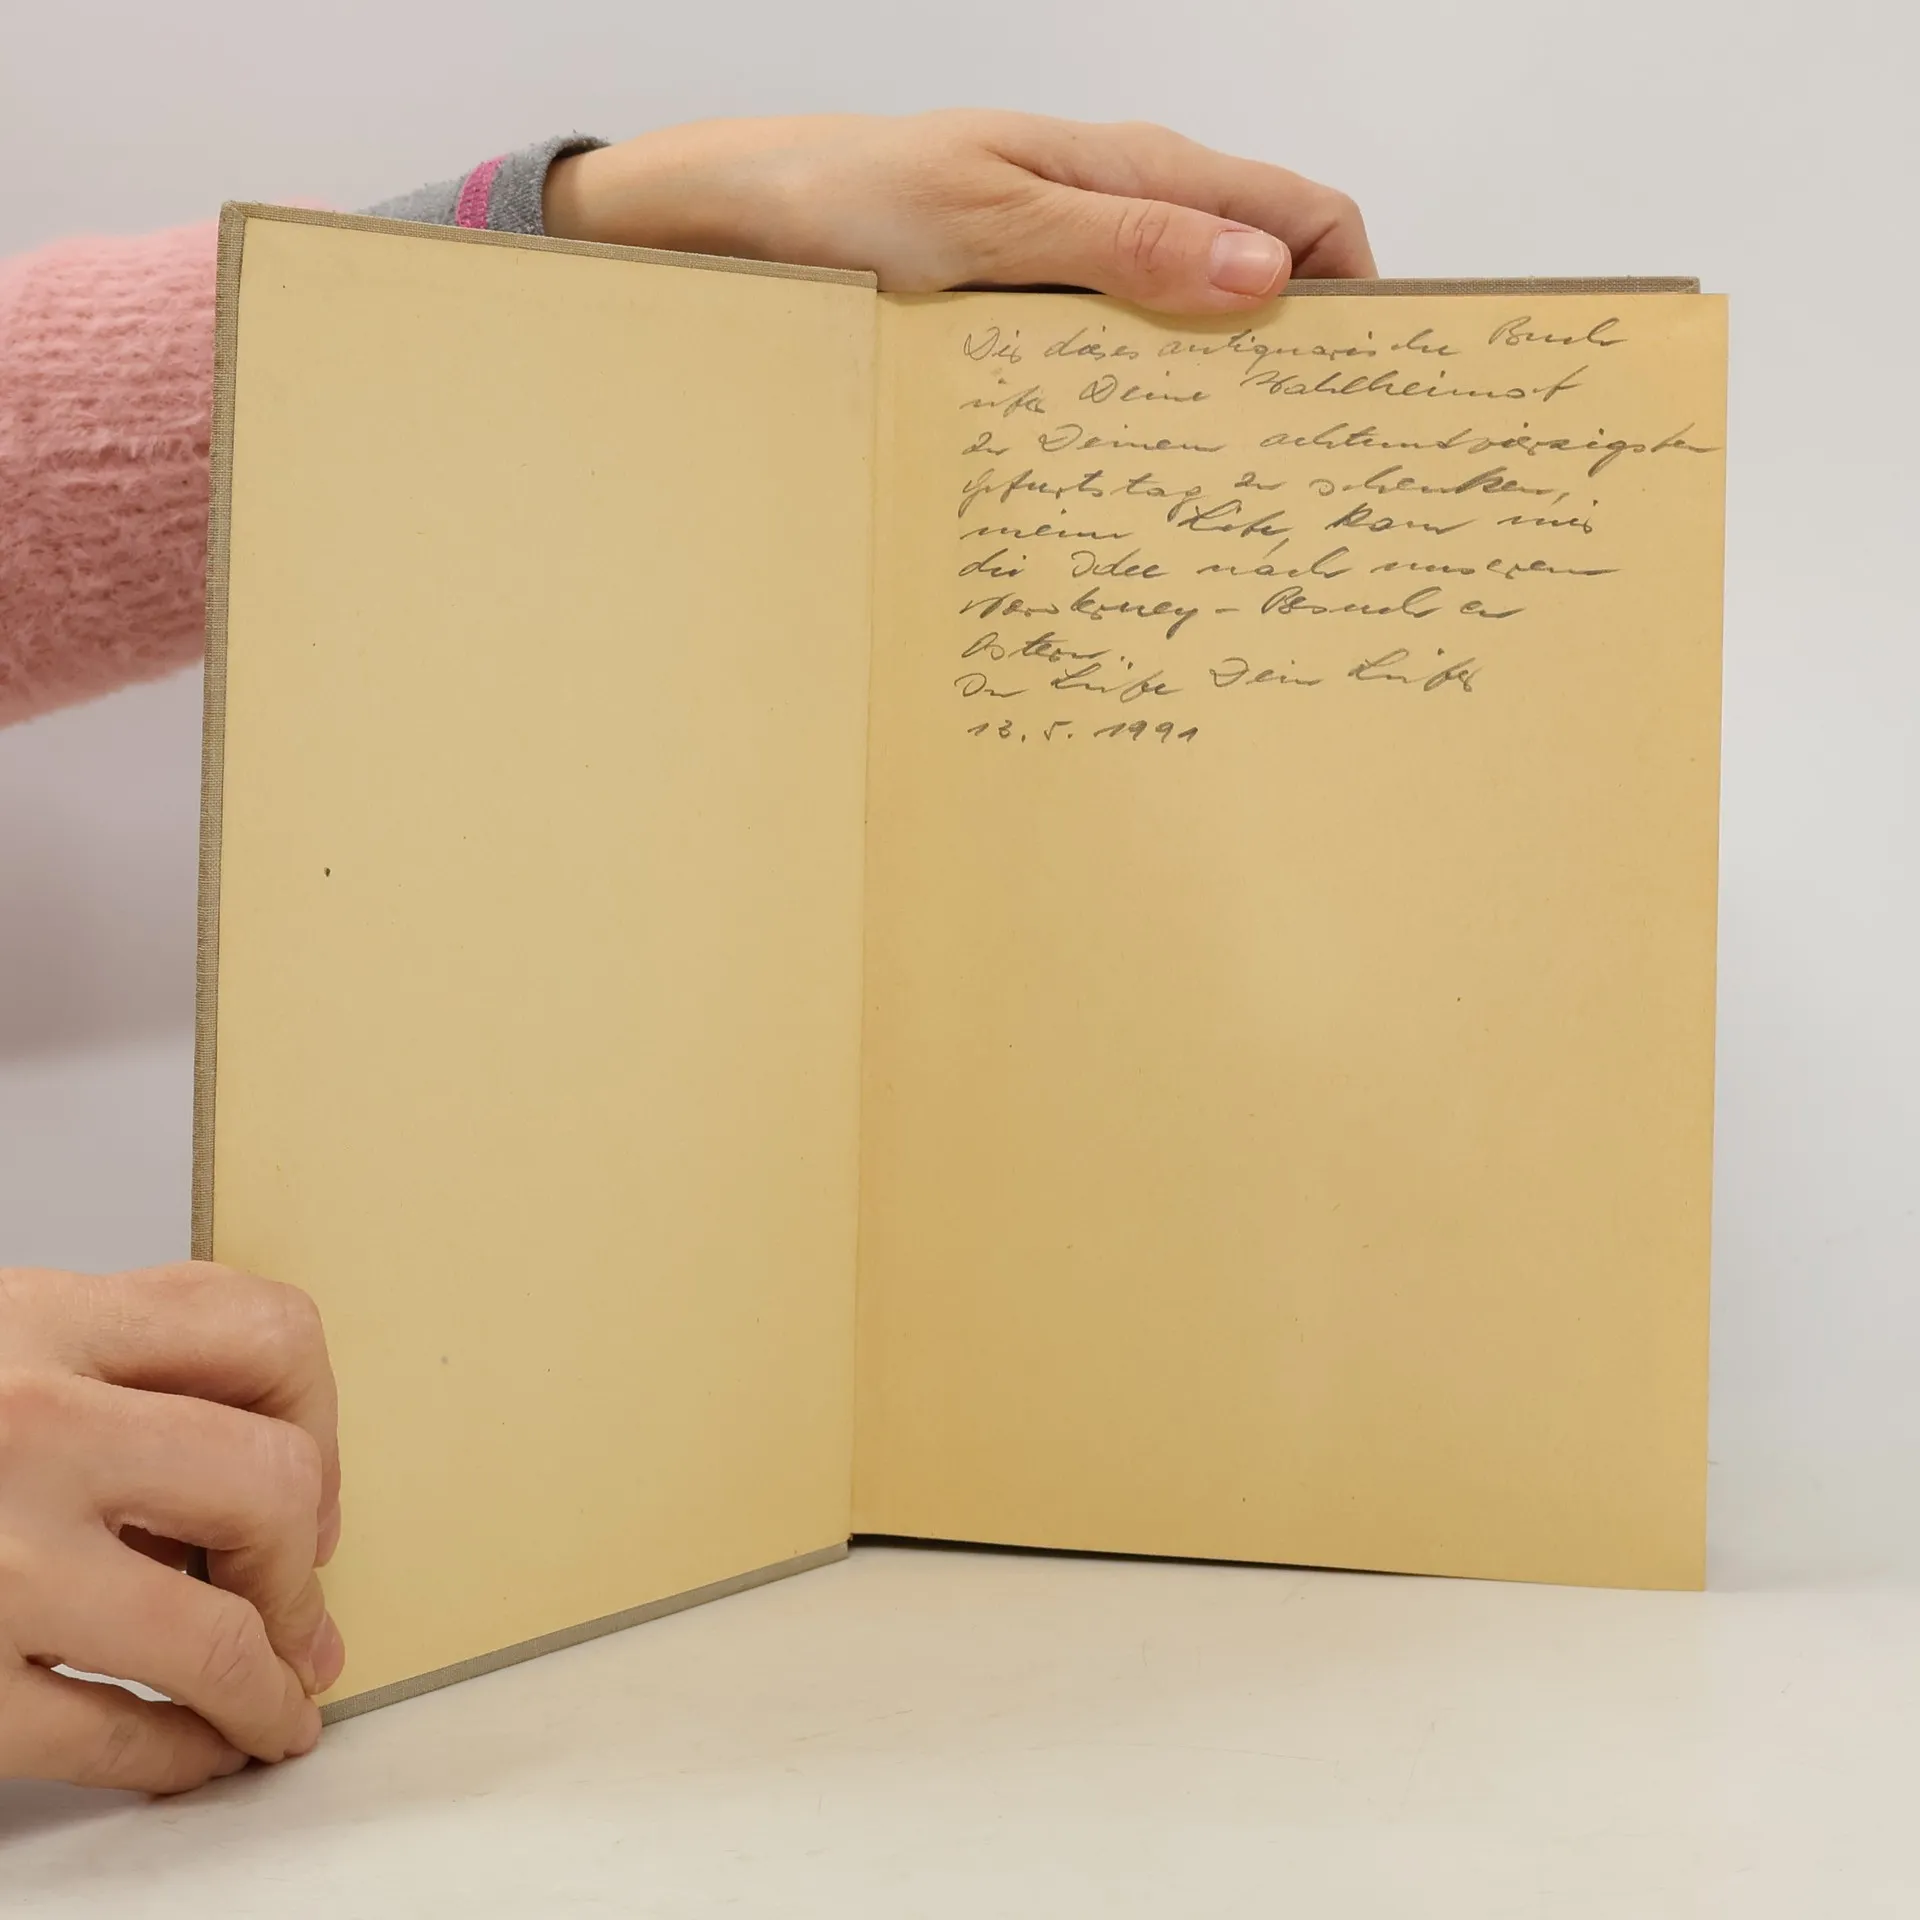 Dir dieses antiquarische Buch
über Deine Wahlheimat
zu Deinem achtundvierzigsten
Geburtstag zu schenken,
meine Liebe, kam mir
die Idee nach unserem
Norderney - Besuch zu
Ostern.
In Liebe Dein
13. 5. 1991